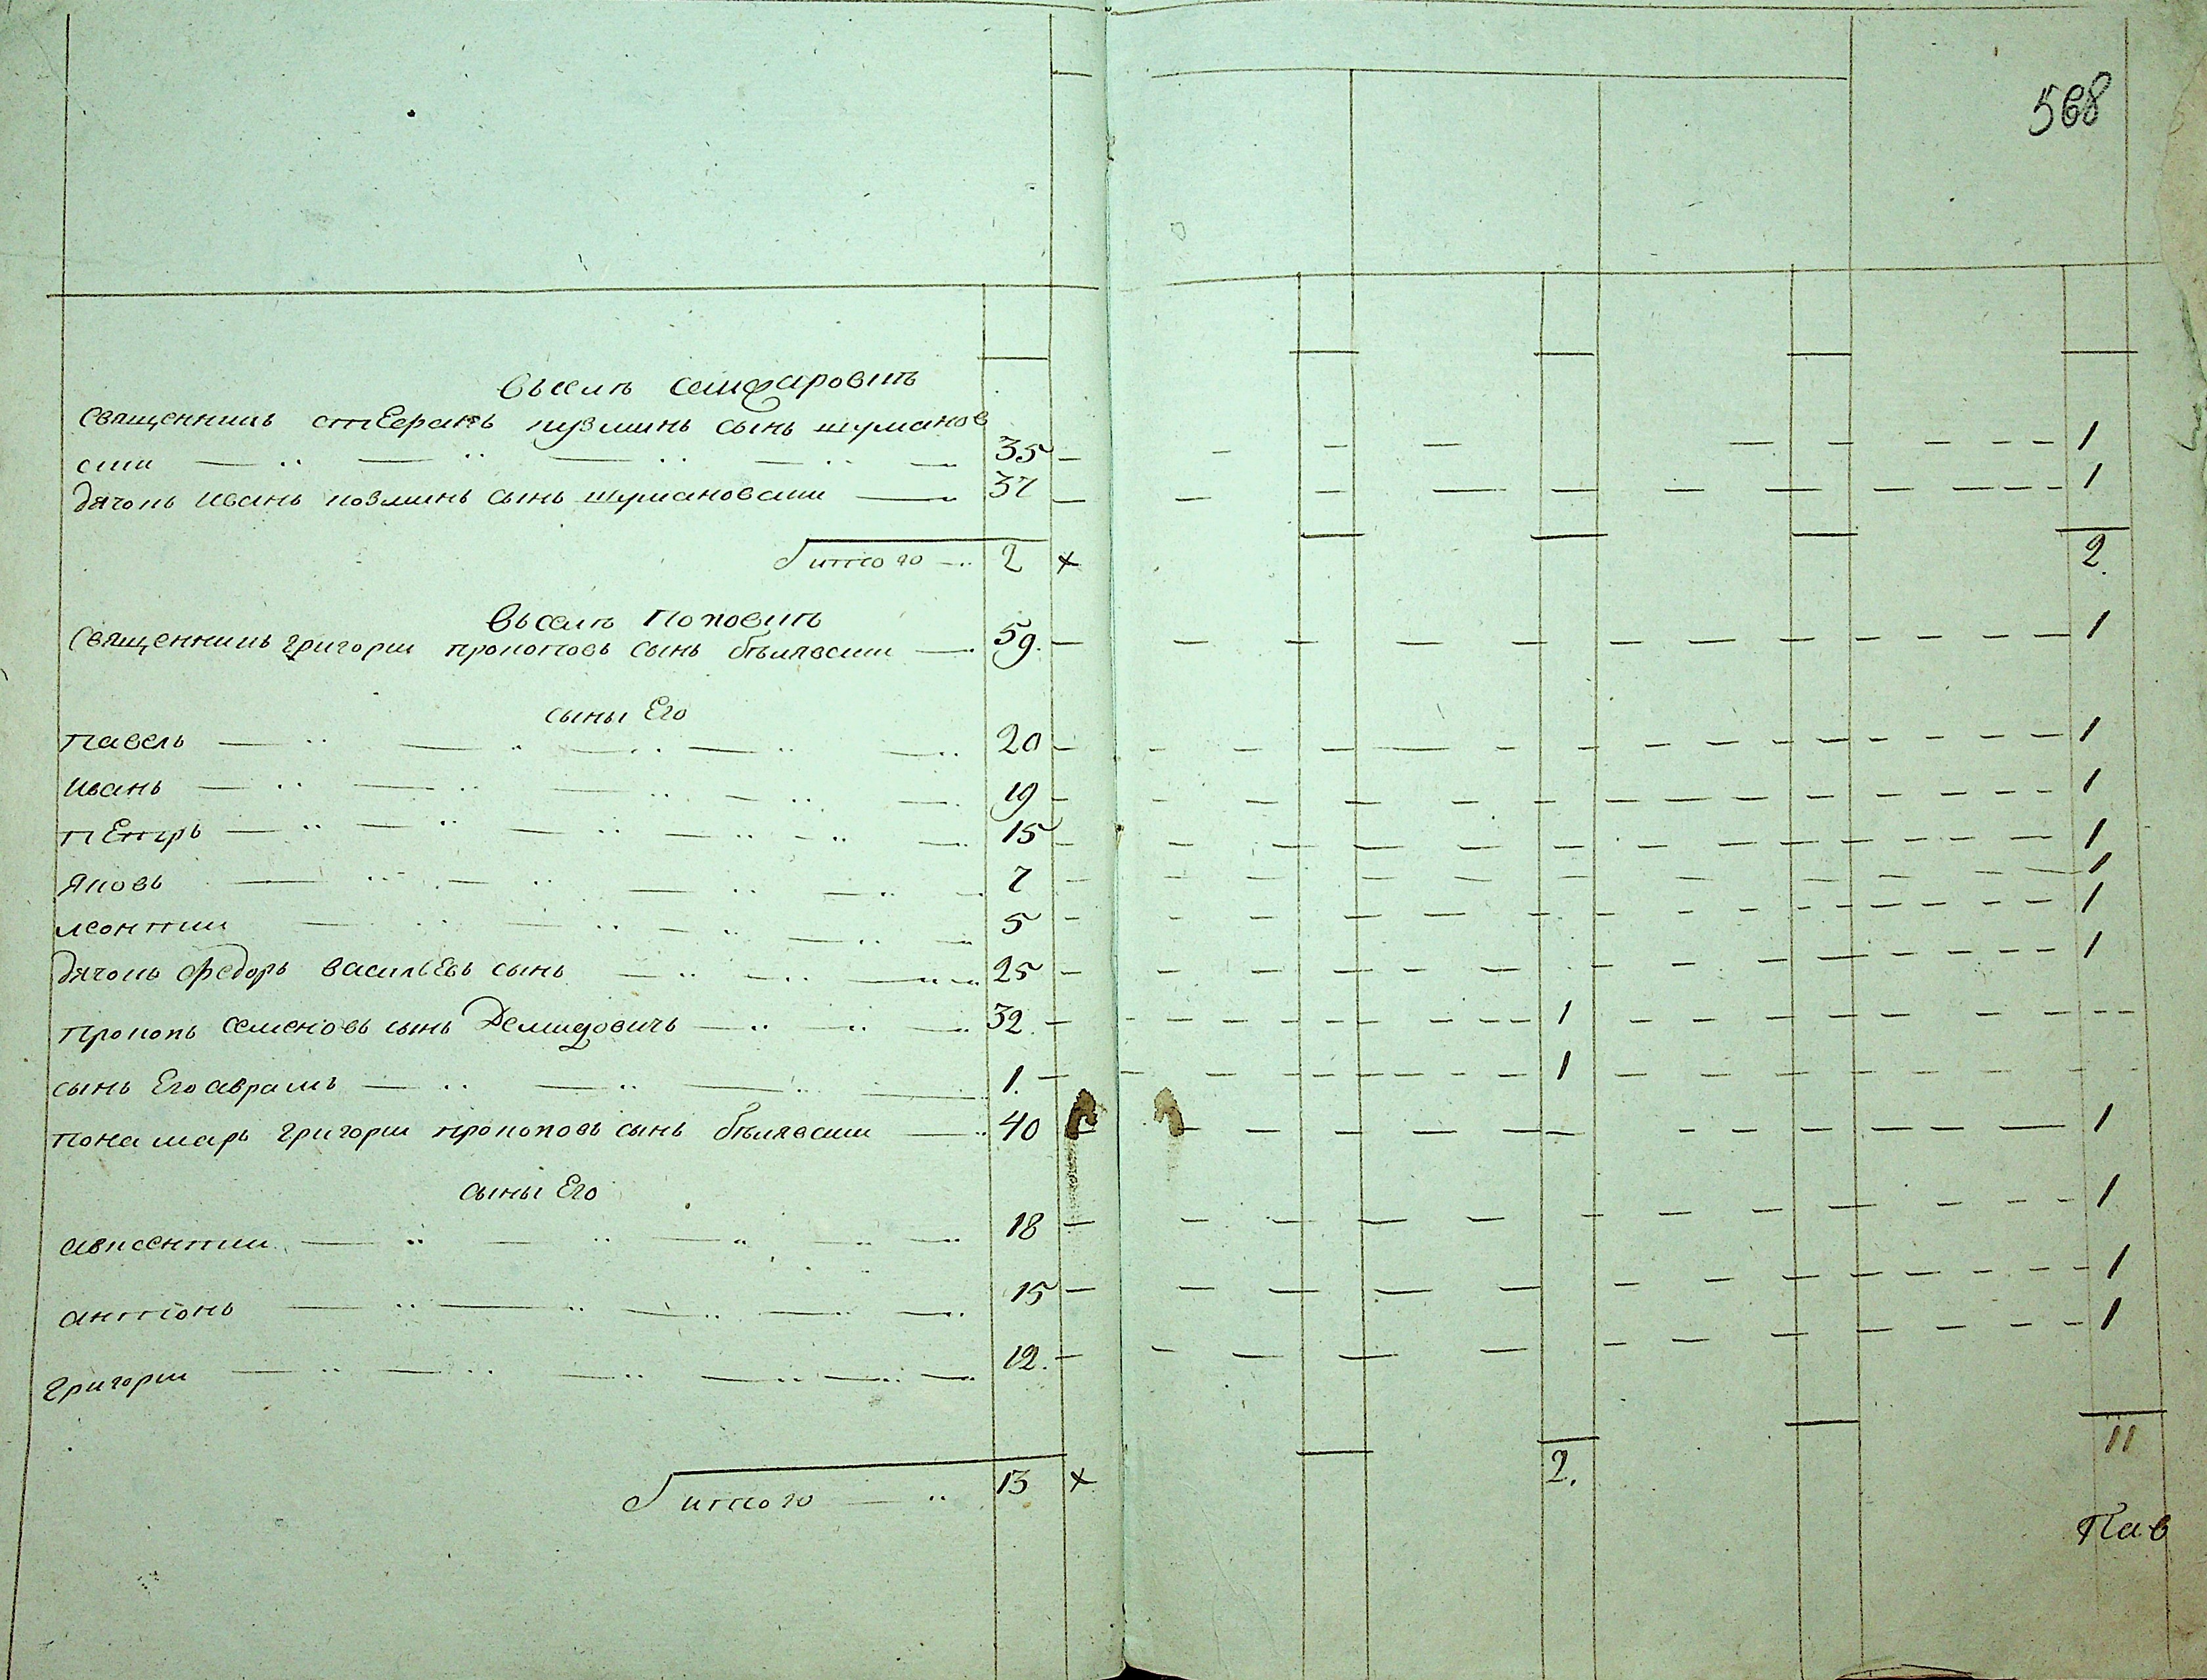 568
Въселѣ
Священникъ стЕфанъ кузминъ сынъ шуманов
ски 35 1
дячокъ Иванъ козминъ сынъ шумановски 37 1
итого 2 × 2.
Въселѣ Поповкѣ
Священникъ григори прокоповъ сынъ бѣлявски 59. 1
сыны Его
Павелъ 20 1
Иванъ 19 1
пЕтръ 15 1
Яковъ 7 1
леонтии 5 1
дячокъ федоръ васильЕвъ сынъ 25 1
Прокопъ семеновъ сынъ Демидовичъ 32. 1
сынъ Его аврамъ 1. 1
понамарь григори прокоповъ сынъ бѣлявски 40 1
сыны Его
авксентии 18 1
антонъ 15 1
григори 12. 1
итого 13 × 2. 11
Пав